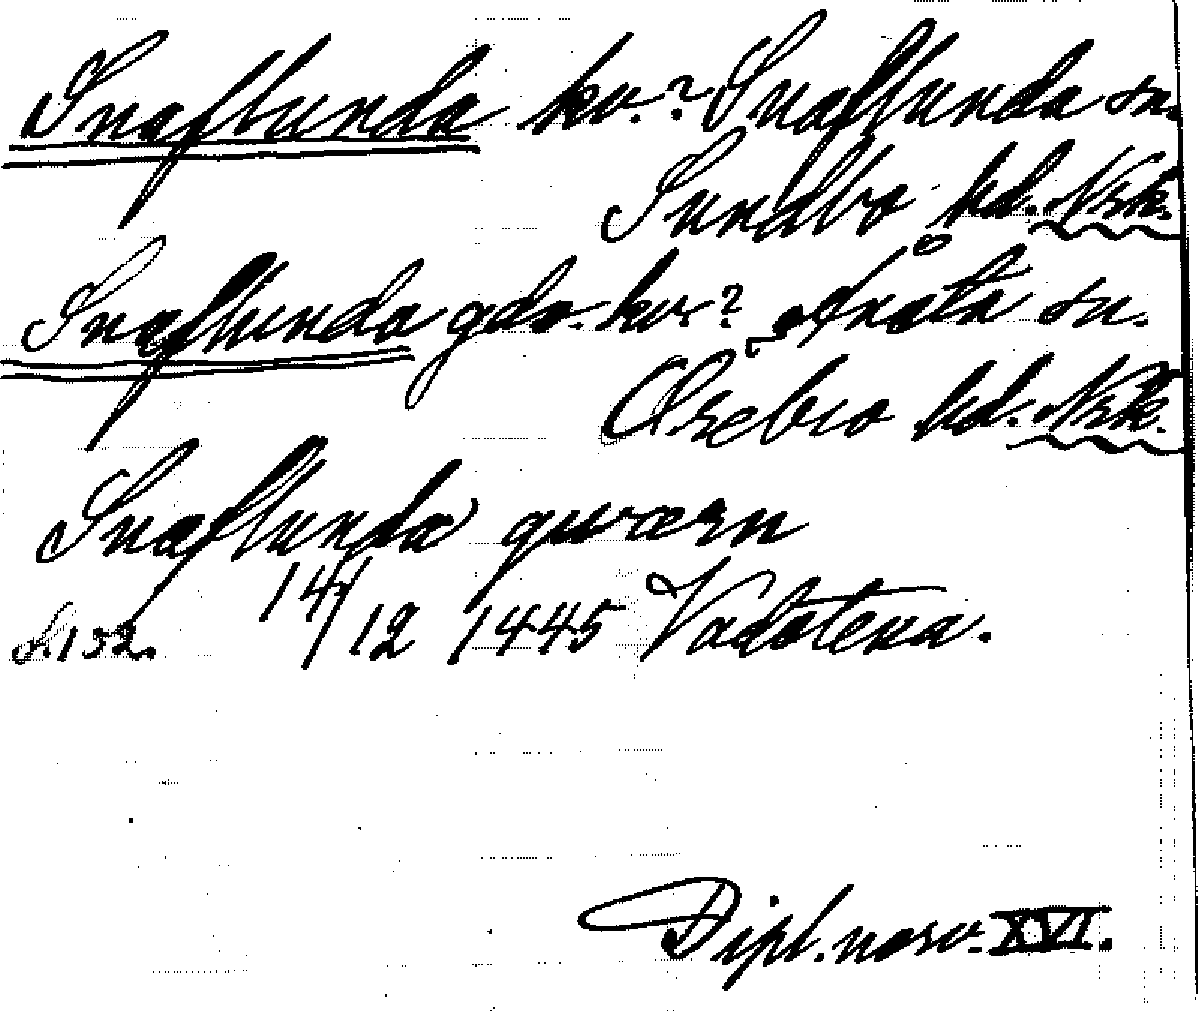 Snaflunda kv.? Snaflunda sn.
Sundbo hd. Nrk.
Snaflunda gdo. kv.? Asksta sn.
Örebro hd. Nrk.
Snaflunda qwærn
14/12 1445 Vadstena.
S. 132.
Dipl. norv. XVI.